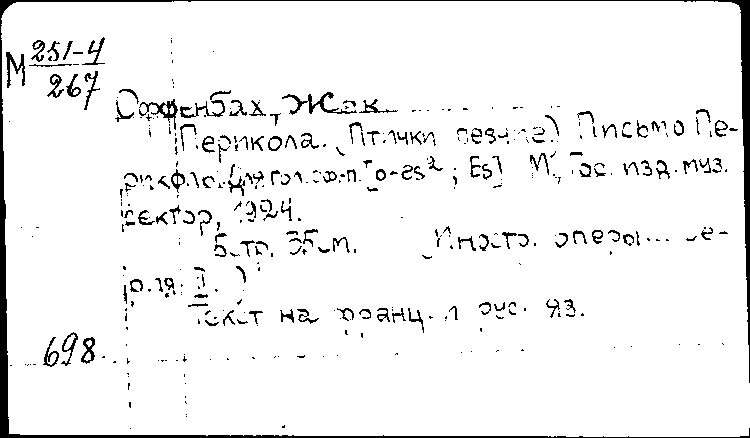 М 251-4
267
Оффенбах, Жак.
Перикола. (Птички певчие) Письмо Пе-
риколы. Для гол. с ф-п. [d-es²; Es] М., Гос. изд. муз.
сектор, 1924.
5 стр. 35 см. (Иностр. оперы... Се-
рия II.)
Текст на франц. и рус. яз.
698.